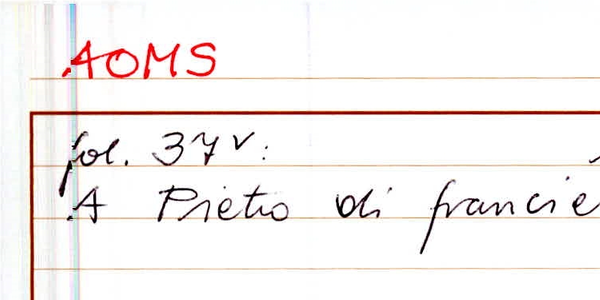 AOMS
fol. 37v:
A Pietro di francie